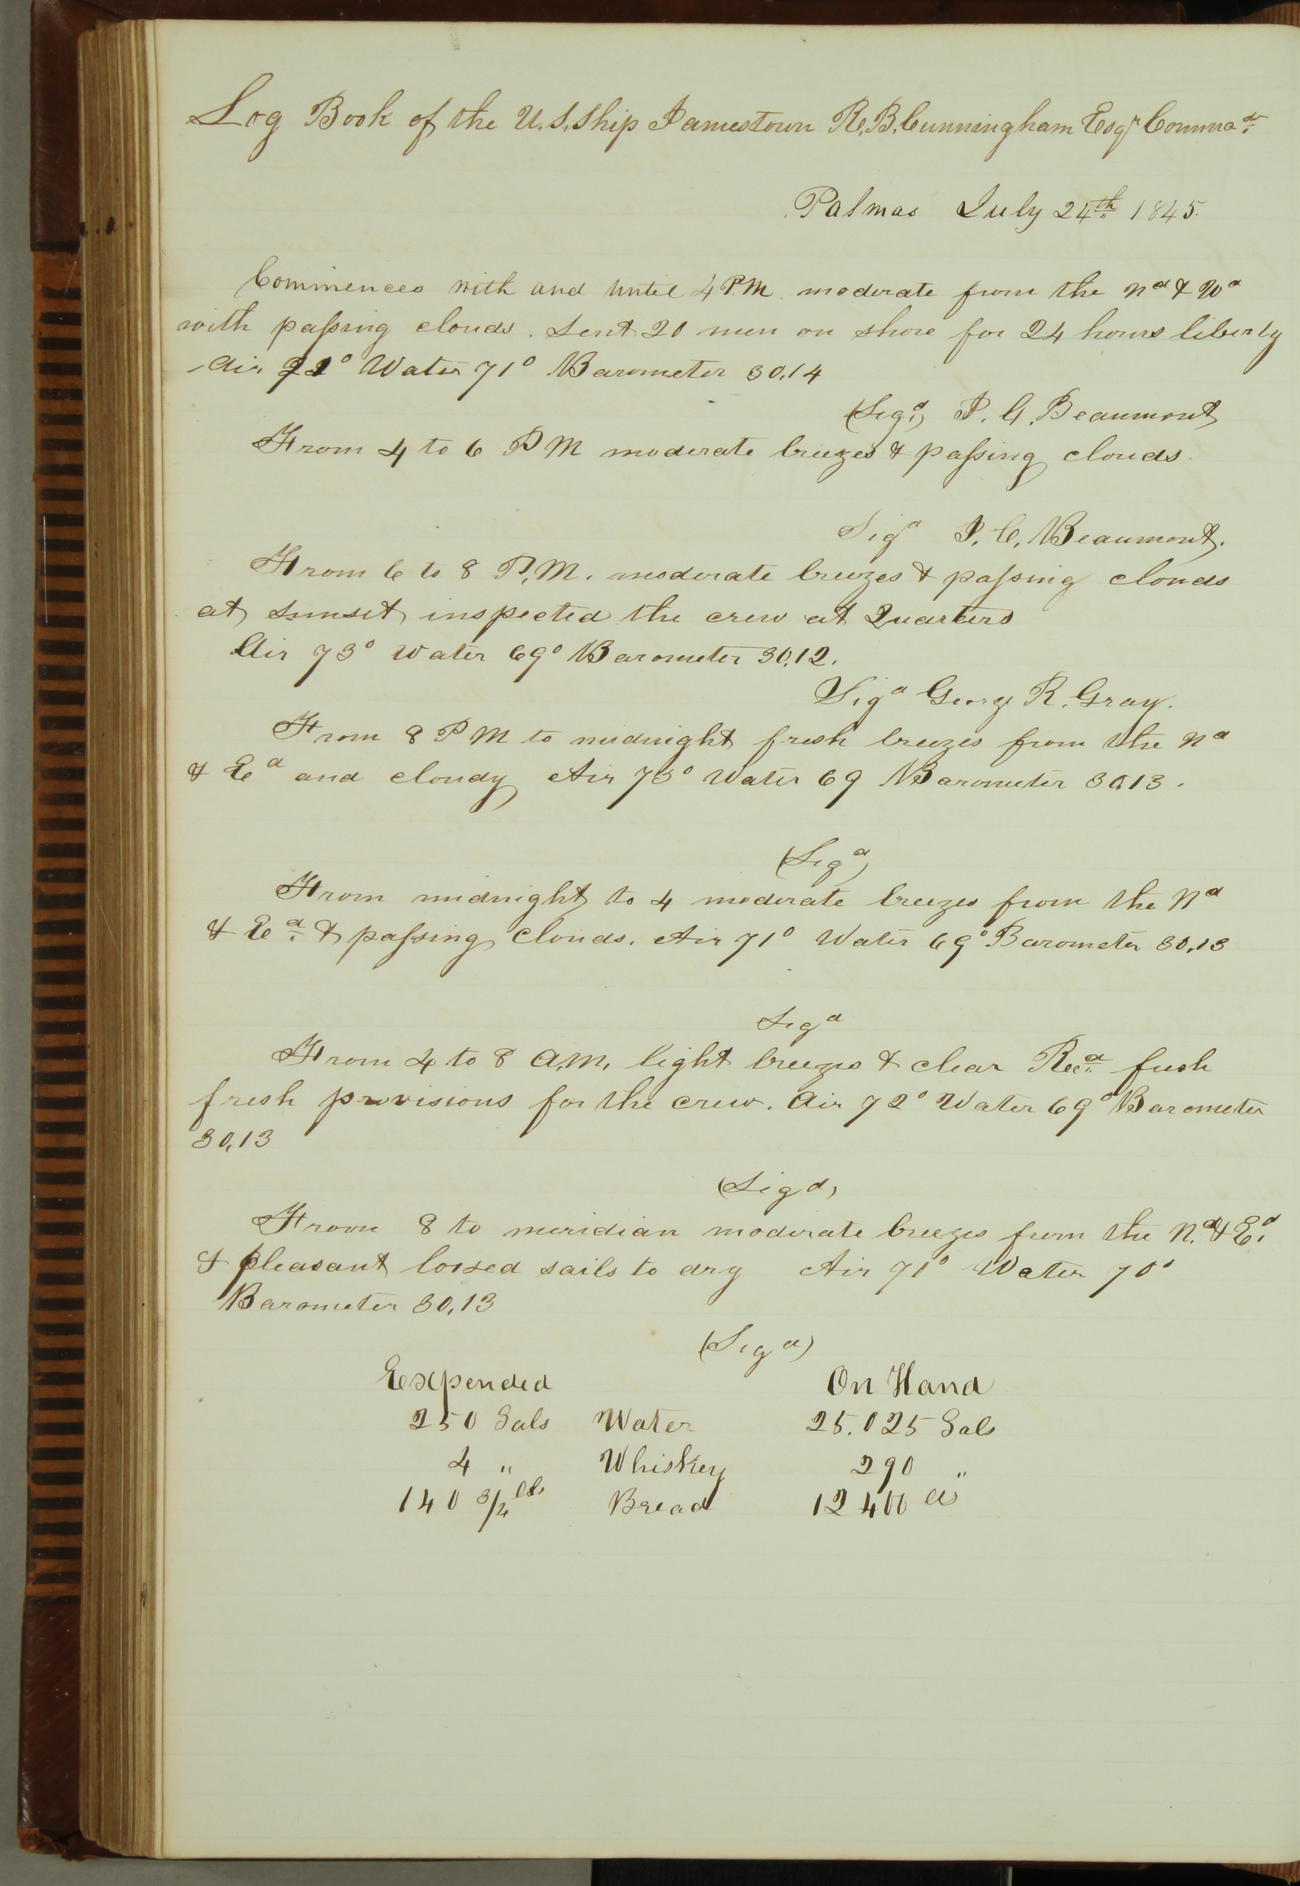 Log Book of the U.S. Ship Jamestown R.B. Cunningham Esqr Commadr
Palmas July 24th 1845.
Commences with and until 4 PM moderate from the Nd & Wd
with passing clouds. Sent 20 men on shore for 24 hours liberty
Air Water 71° Barometer 30.14
(Sigd) J. C. Beaumont
From 4 to 6 PM moderate breezes & passing clouds.
Sigd J. C. Beaumont.
From 6 to 8 P.M. moderate breezes & passing clouds
at sunset inspected the crew at Quarters
Air 73° Water 69° Barometer 30.12.
Sigd George R. Gray.
From 8 PM to midnight fresh breezes from the Nd
& Ed and cloudy Air 73° Water 69 Barometer 30.13.
(Sigd)
From midnight to 4 moderate breezes from the Nd
& Ed & passing Clouds. Air 71° Water 69° Barometer 30.13
Sigd
From 4 to 8 A.M. light breezes & clear Recd fresh
fresh provisions for the crew. Air 72° Water 69° Barometer
30.13
(Sigd)
From 8 to meridian moderate breezes from the N.d & E.d
& pleasant loosed sails to dry Air 71° Water 70°
Barometer 30.13
(Sigd)
Expended On Hand
250 Gals Water 25.025 Gals
4 " Whiskey 290 "
140 3/4 lbs Bread 12400 lbs